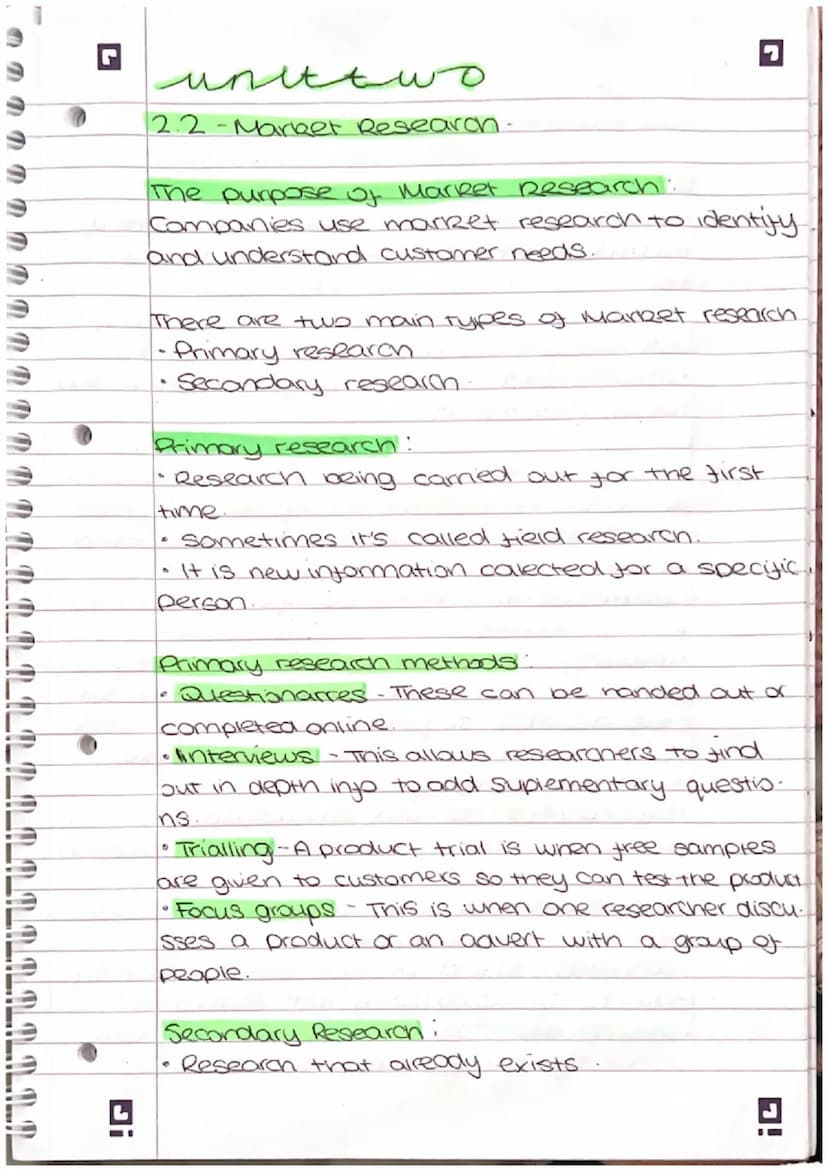 unit two
2.2 - Market Research.
The purpose of Market Research:
Companies use market research to identify
and understand customer needs.
There are two main types of Market research
· Primary research
· Secondary research.
Primary research:
· Research being carried out for the first
time.
· Sometimes it's called field research.
· It is new information colected for a specific
person.
Primary research methods:
· Questionarres - These can be handed out or
completed online.
· Interviews - This allows researchers to find
out in depth info to add suplementary questio-
ns.
· Trialling - A product trial is when free samples
are given to customers so they can test the product
· Focus groups - This is when one researcher discu-
sses a product or an advert with a group of
people.
Secondary Research:
· Research that already exists.